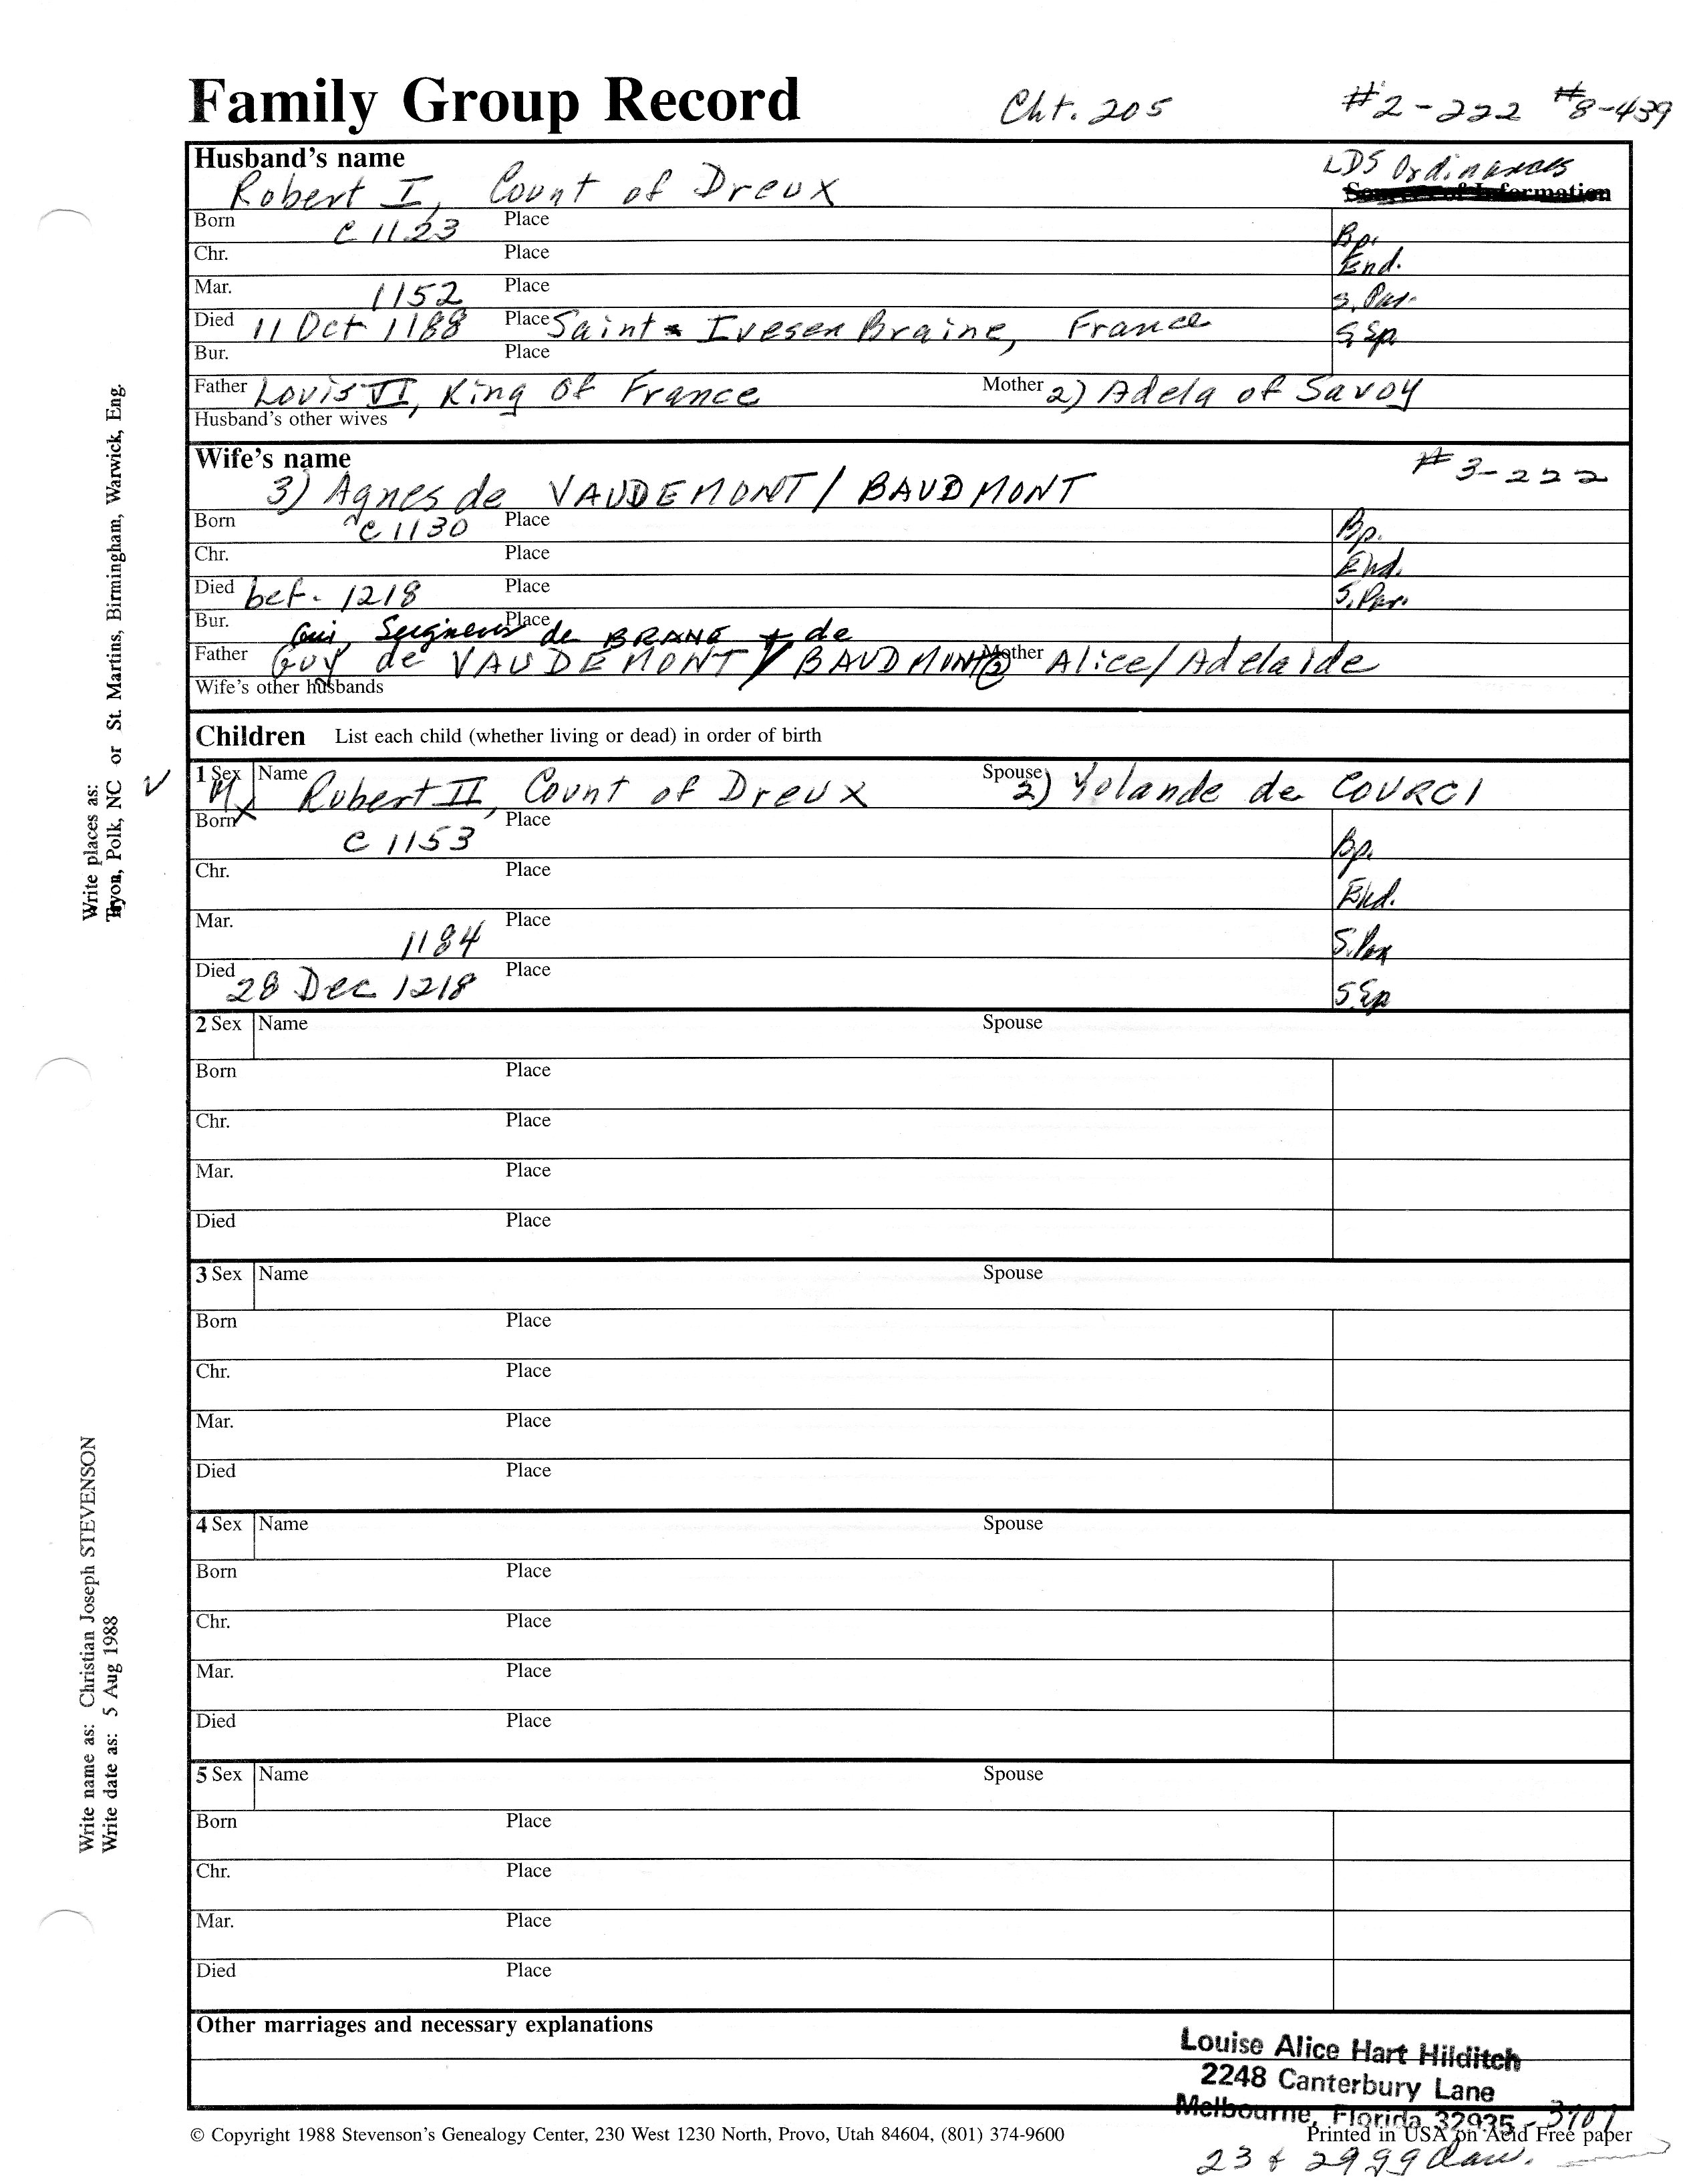 Family Group Record Cht. 205 #2-222 #8-439
Husband's name LDS Ordinances
Robert I, Count of Dreux
Born c 1123 Place Bp.
Chr. Place End.
Mar. 1152 Place S. Par.
Died 11 Oct 1188 Place Saint Ivesen Braine, France S Sp
Bur. Place
Father Louis VI, King of France Mother 2) Adela of Savoy
Husband's other wives
Wife's name #3-222
3) Agnes de VAUDEMONT / BAUDMONT
Born c 1130 Place Bp.
Chr. Place End.
Died bef. 1218 Place S. Par.
Bur. Place
Gui, Seigneur de BRANE + de
Father Guy de VAUDEMONT / BAUDMONT Mother Alice/Adelaide
Wife's other husbands
Children List each child (whether living or dead) in order of birth
1 Sex M Name Robert II, Count of Dreux Spouse 2) Yolande de COURCI
Born c 1153 Place Bp.
Chr. Place End.
Mar. 1184 Place S. Par
Died 28 Dec 1218 Place S Sp
2 Sex Name Spouse
Born Place
Chr. Place
Mar. Place
Died Place
3 Sex Name Spouse
Born Place
Chr. Place
Mar. Place
Died Place
4 Sex Name Spouse
Born Place
Chr. Place
Mar. Place
Died Place
5 Sex Name Spouse
Born Place
Chr. Place
Mar. Place
Died Place
Other marriages and necessary explanations
Louise Alice Hart Hilditch
2248 Canterbury Lane
Melbourne, Florida 32935 - 3707
© Copyright 1988 Stevenson's Genealogy Center, 230 West 1230 North, Provo, Utah 84604, (801) 374-9600 Printed in USA on Acid Free paper
23 & 29 gg dau.
Write places as:
Tryon, Polk, NC or St. Martins, Birmingham, Warwick, Eng.
Write name as: Christian Joseph STEVENSON
Write date as: 5 Aug 1988